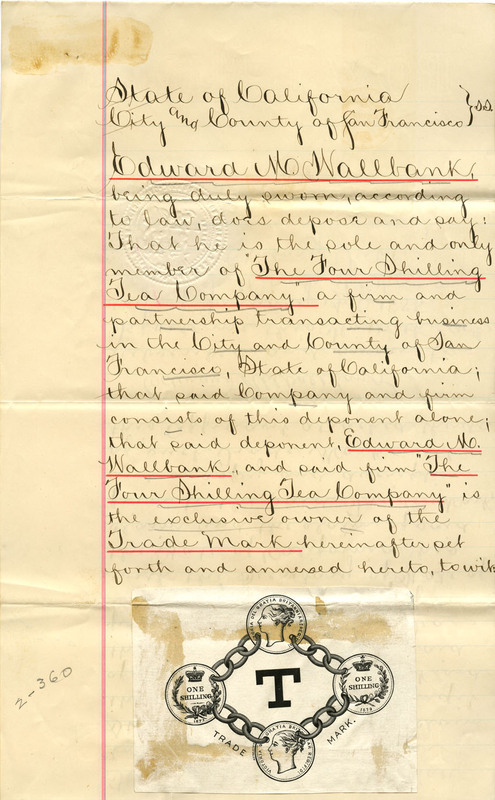 State of California } ss.
City and County of San Francisco
Edward M Wallbank,
being duly sworn, according
to law, does depose and say:
That he is the sole and only
member of "The Four Shilling
Tea Company", a firm and
partnership transacting business
in the City and County of San
Francisco, State of California;
that said Company and firm
consists of this deponent alone;
that said deponent, Edward M.
Wallbank, and said firm "The
Four Shilling Tea Company" is
the exclusive owner of the
Trade Mark hereinafter set
forth and annexed hereto, to wit
2-360
DEI GRATIA BRITANNIAR
ONE
SHILLING
T
ONE
SHILLING
1879
TRADE MARK.
VICTORIA DEI GRATIA